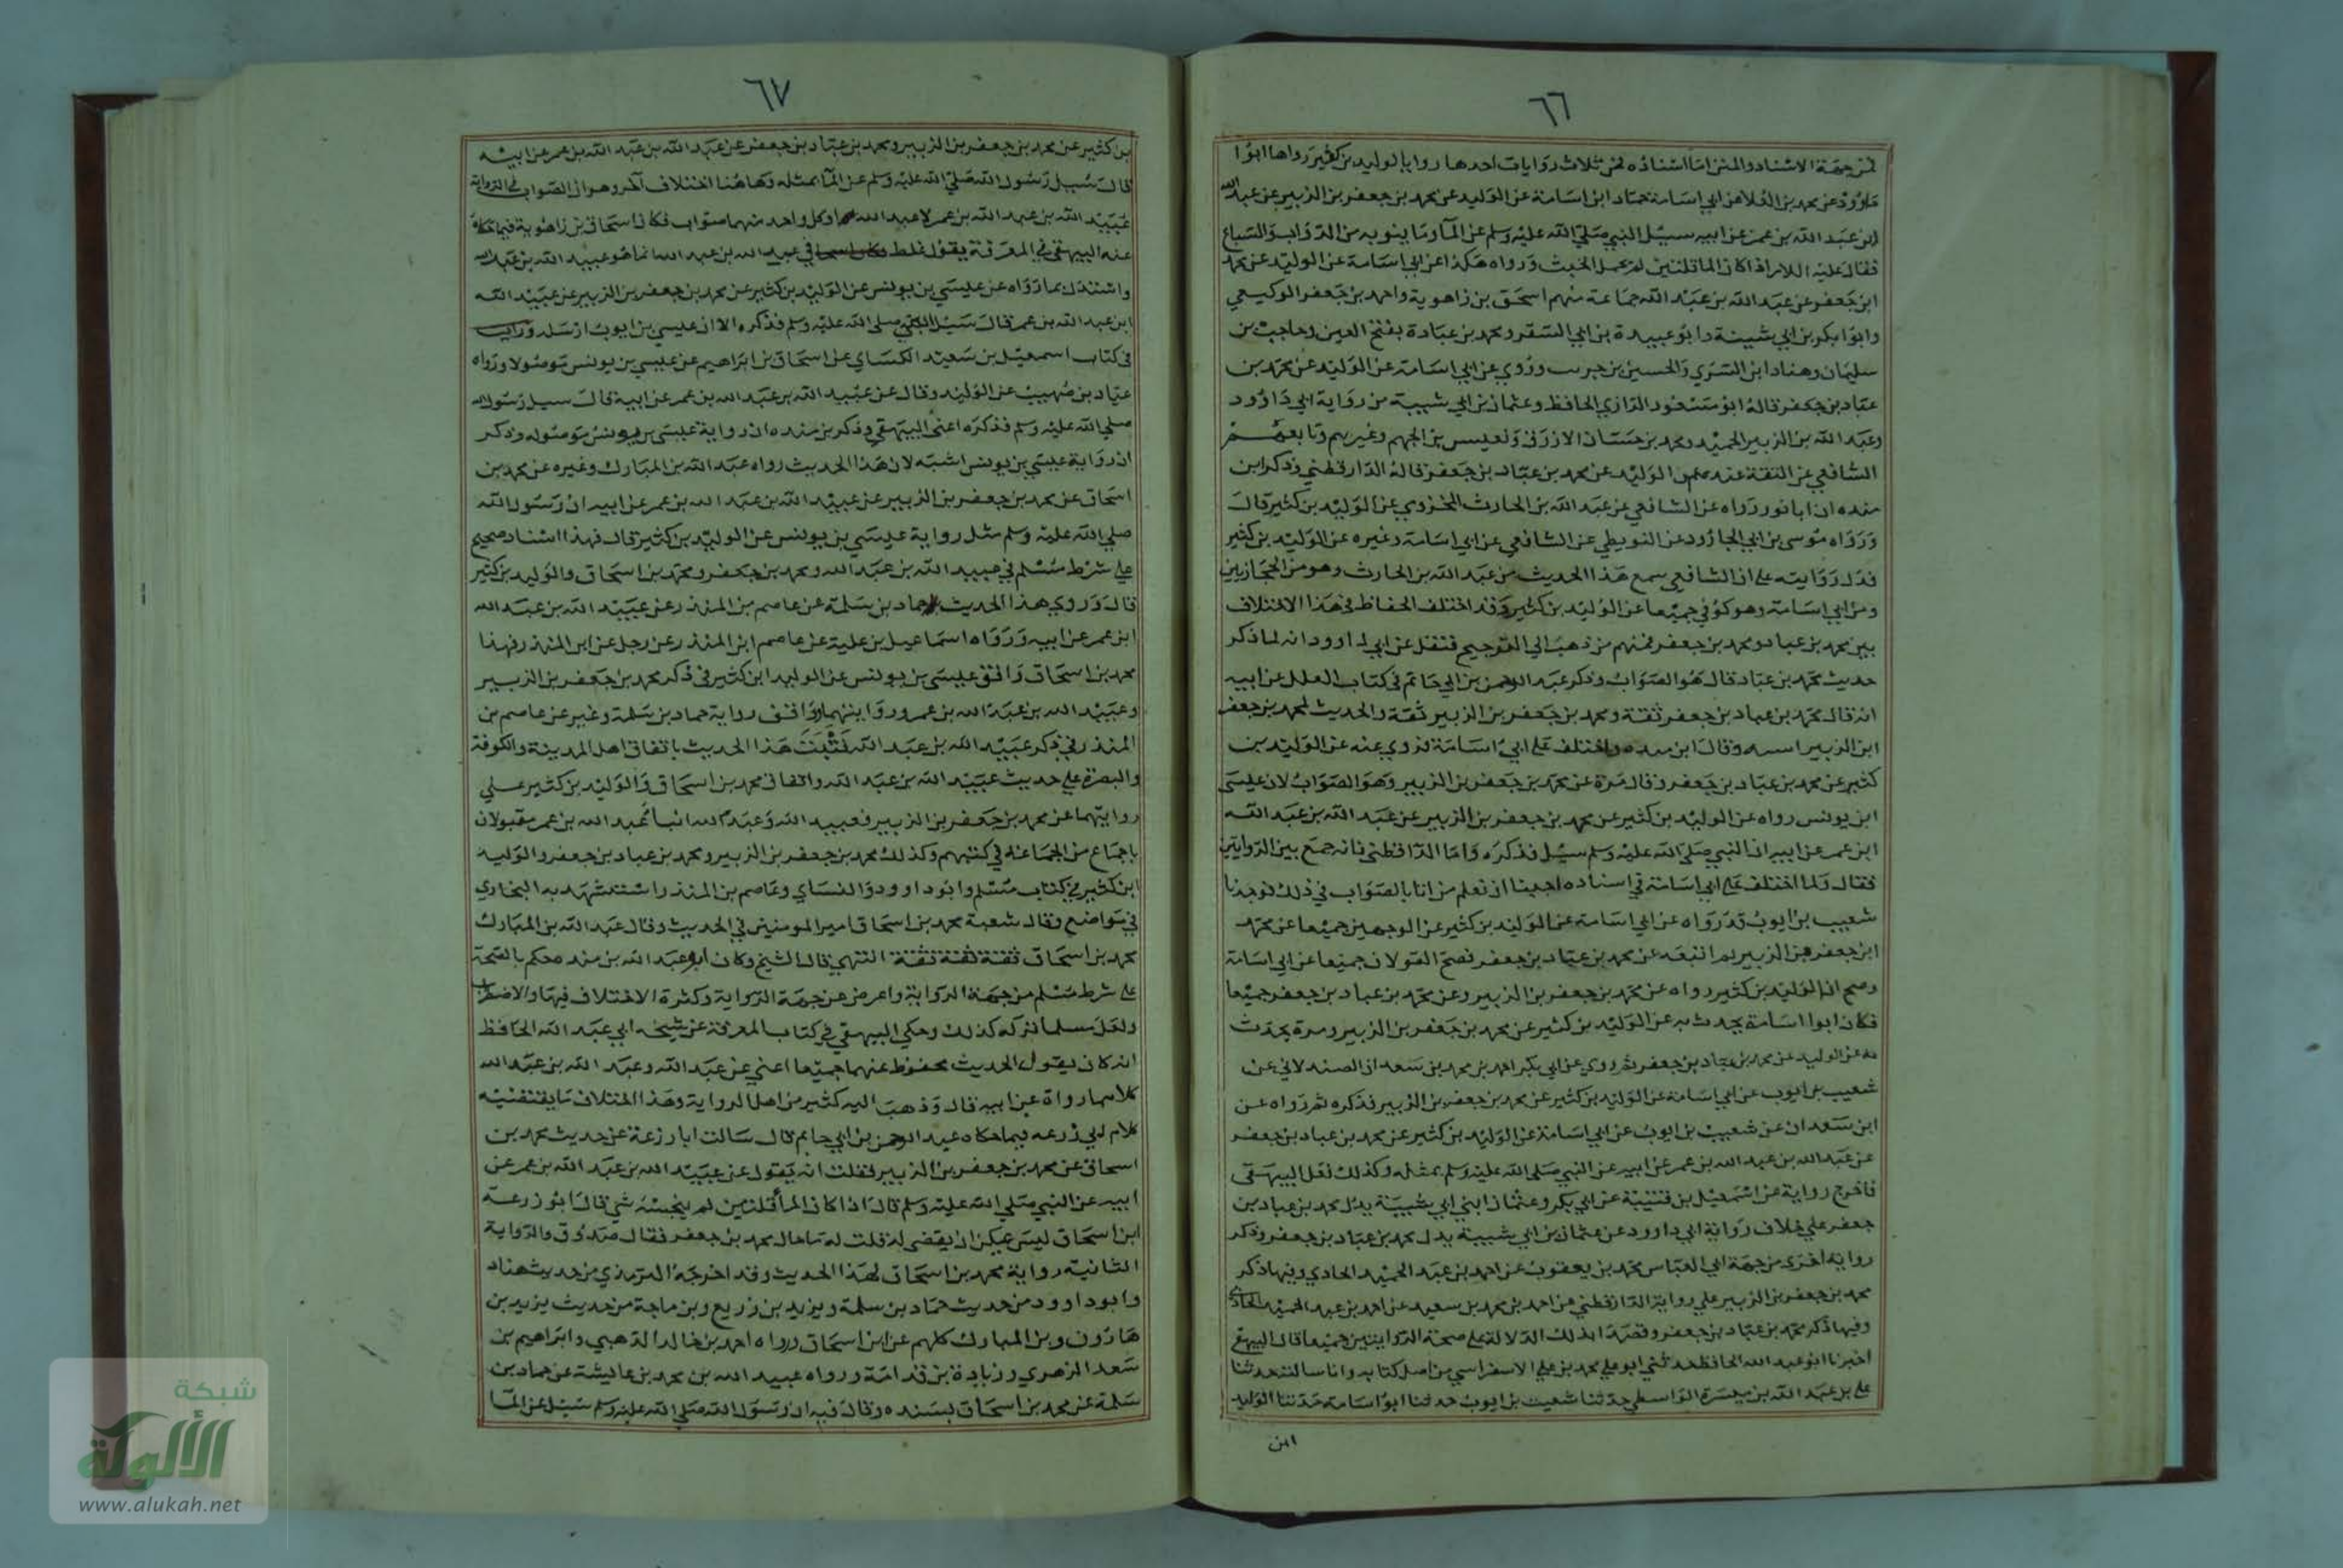 ٦٦
فمن جهة الاسناد والمتن اما اسناده فمن ثلاث روايات احدها رواية الوليد بن كثير رواها ابوا
داوود عن محمد بن العلا عن ابي اسامة حماد ابن اسامة عن الوليد عن محمد بن جعفر بن الزبير عن عبد الله
ابن عبد الله بن عمر عن ابيه سيل النبي صلى الله عليه وسلم عن المآ وما ينوبه من الدواب والسباع
فقال عليه السلام اذا كان الما قلتين لم يحمل الخبث ورواه هكذا عن ابي اسامة عن الوليد عن محمد
ابن جعفر عن عبد الله بن عبد الله جماعة منهم اسحق بن راهوية واحمد بن جعفر الوكيعي
وابوا بكر بن ابي شيبة وابو عبيدة بن ابي السفر ومحمد بن عبادة بفتح العين وحاجب بن
سليمان وهناد ابن السري والحسين بن حريث وروي عن ابي اسامة عن الوليد عن محمد بن
عباد بن جعفر قاله ابو مسعود الرازي الحافظ وعثمان بن ابي شيبة من رواية ابي داوود
وعبد الله بن الزبير الحميد ومحمد بن حسان الازرق ونعيس بن الجهم وغيرهم وتابعهم
الشافعي عن الثقة عنده عن الوليد عن محمد بن عباد بن جعفر قاله الدارقطني وذكر ابن
منده ان ابا ثور رواه عن الشافعي عن عبد الله بن الحارث المخزومي عن الوليد بن كثير قال
ورواه موسى بن ابي الجارود عن البويطي عن الشافعي عن ابي اسامة وغيره عن الوليد بن كثير
فدل روايته على ان الشافعي سمع هذا الحديث من عبد الله بن الحارث وهو من الحجازيين
ومن ابي اسامة وهو كوفي جميعا عن الوليد بن كثير وقد اختلف الحفاظ في هذا الاختلاف
بين محمد بن عباد ومحمد بن جعفر فمنهم من ذهب الى الترجيح فنقل عن ابي داوود انه لما ذكر
حديث محمد بن عباد قال هو الصواب وذكر عبد الرحمن بن ابي حاتم في كتاب العلل عن ابيه
انه قال محمد بن عباد بن جعفر ثقة ومحمد بن جعفر بن الزبير ثقة والحديث لمحمد بن جعفر
ابن الزبير اسبه وقال ابن منده واختلف على ابي اسامة فروي عنه عن الوليد بن
كثير عن محمد بن عباد بن جعفر وقال مرة عن محمد بن جعفر بن الزبير وهو الصواب لان عيسى
ابن يونس رواه عن الوليد بن كثير عن محمد بن جعفر بن الزبير عن عبد الله بن عبد الله
ابن عمر عن ابيه ان النبي صلى الله عليه وسلم سيل فذكره واما الدارقطني فانه جمع بين الروايتين
فقال ولما اختلف على ابي اسامة في اسناده احببنا ان نعلم من اتا بالصواب في ذلك فوجدنا
شعيب بن ايوب قد رواه عن ابي اسامة عن الوليد بن كثير عن الوجهين جميعا عن محمد
ابن جعفر بن الزبير ثم اتبعه عن محمد بن عباد بن جعفر فصح القولان جميعا عن ابي اسامة
وصح ان الوليد بن كثير رواه عن محمد بن جعفر بن الزبير وعن محمد بن عباد بن جعفر جميعا
فكان ابوا اسامة يحدث به عن الوليد بن كثير عن محمد بن جعفر بن الزبير ومرة يحدث
به عن الوليد عن محمد بن عباد بن جعفر ثم روي عن ابي بكر احمد بن محمد بن سعدان الصيدلاني عن
شعيب بن ايوب عن ابي اسامة عن الوليد بن كثير عن محمد بن جعفر بن الزبير فذكره ثم رواه عن
ابن سعدان عن شعيب بن ايوب عن ابي اسامة عن الوليد بن كثير عن محمد بن عباد بن جعفر
عن عبد الله بن عبد الله بن عمر عن ابيه عن النبي صلى الله عليه وسلم بمثله وكذلك فعل البيهقي
فاخرج رواية عن اسمعيل بن قتيبة عن ابي بكر وعثمان ابني ابي شيبة بدل محمد بن عباد بن
جعفر على خلاف رواية ابي داوود عن عثمان بن ابي شيبة بدل محمد بن عباد بن جعفر وذكر
رواية اخرى من جهة ابي العباس محمد بن يعقوب عن احمد بن عبد الحميد الحادي وفيها ذكر
محمد بن جعفر بن الزبير على رواية الدارقطني عن احمد بن محمد بن سعيد عن احمد بن عبد الحميد الحادي
وفيها ذكر محمد بن عباد بن جعفر وقصدا بذلك الدلالة على صحة الروايتين جميعا قال البيهقي
اخبرنا ابو عبد الله الحافظ حدثني ابو علي محمد بن علي الاسفراسي من اصل كتابه وانا سالته حدثنا
علي بن عبد الله بن ميسرة الواسطي حدثنا شعيب بن ايوب حدثنا ابوا اسامة حدثنا الوليد
ابن
٦٧
بن كثير عن محمد بن جعفر بن الزبير ومحمد بن عباد بن جعفر عن عبد الله بن عبد الله بن عمر عن ابيه
قال سيل رسول الله صلى الله عليه وسلم عن المآ بمثله وهاهنا اختلاف آخر وهو ان الصواب في الرواية
عبيد الله بن عبد الله بن عمر لا عبد الله او كل واحد منهما صواب فكان اسحاق بن راهوية فيما حكاه
عنه البيهقي في المعرفة يقول غلط في عبد الله بن عبد الله انما هو عبيد الله بن عبد الله
واستدل بما رواه عن عيسي بن يونس عن الوليد بن كثير عن محمد بن جعفر بن الزبير عن عبيد الله
ابن عبد الله بن عمر قال سيل النبي صلى الله عليه وسلم فذكره الا ان عيسي بن ايوب ارسله ورايت
في كتاب اسمعيل بن سعيد الكساي عن اسحاق بن ابراهيم عن عيسي بن يونس موصولا ورواه
عباد بن صهيب عن الوليد وقال عن عبيد الله بن عبد الله بن عمر عن ابيه قال سيل رسول الله
صلى الله عليه وسلم فذكره اعني البيهقي وذكر بن منده ان رواية عيسى بن يونس موصوله وذكر
ان رواية عيسي بن يونس اشبه لان هذا الحديث رواه عبد الله بن المبارك وغيره عن محمد بن
اسحاق عن محمد بن جعفر بن الزبير عن عبيد الله بن عبد الله بن عمر عن ابيه ان رسول الله
صلي الله عليه وسلم مثل رواية عيسي بن يونس عن الوليد بن كثير قال فهذا اسناد صحيح
على شرط مسلم في عبيد الله بن عبد الله ومحمد بن جعفر ومحمد بن اسحاق والوليد بن كثير
قال وروي هذا الحديث حماد بن سلمة عن عاصم بن المنذر عن عبيد الله بن عبد الله
ابن عمر عن ابيه ورواه اسماعيل بن علية عن عاصم ابن المنذر عن رجل عن ابن المنذر فهذا
محمد بن اسحاق وافق عيسى بن يونس عن الوليد ابن كثير في ذكر محمد بن جعفر بن الزبير
وعبيد الله بن عبد الله بن عمر وروايتهما وافق رواية حماد بن سلمة وغير عن عاصم بن
المنذر في ذكر عبيد الله بن عبد الله فثبت هذا الحديث باتفاق اهل المدينة والكوفة
والبصرة على حديث عبيد الله بن عبد الله واتفاق محمد بن اسحاق والوليد بن كثير على
روايتهما عن محمد بن جعفر بن الزبير فعبيد الله وعبد الله ابنا عبد الله بن عمر مقبولان
باجماع من الجماعة في كتبهم وكذلك محمد بن جعفر بن الزبير ومحمد بن عباد بن جعفر والوليد
ابن كثير في كتاب مسلم وابو داوود والنساي وعاصم بن المنذر استشهد به البخاري
في مواضع وقال شعبة محمد بن اسحاق امير المومنين في الحديث وقال عبد الله بن المبارك
محمد بن اسحاق ثقة ثقة ثقة انتهي قال الشيخ وكان ابو عبد الله بن منده حكم بالصحة
على شرط مسلم من جهة الرواية واعرض عن جهة الرواية وكثرة الاختلاف فيها والاضطراب
ولعل مسلما تركه كذلك وحكي البيهقي في كتاب المعرفة عن شيخه ابي عبد الله الحافظ
انه كان يقول الحديث محفوظ عنهما جميعا اعني عن عبد الله وعبد الله بن عبد الله
كلاهما رواه عن ابيه قال وذهب اليه كثير من اهل الرواية وهذا اختلاف ما يقتضيه
كلام ابي زرعه فيما حكاه عبد الرحمن بن ابي حاتم قال سالت ابا زرعة عن حديث محمد بن
اسحاق عن محمد بن جعفر بن الزبير فقلت انه يقول عن عبيد الله بن عبد الله بن عمر عن
ابيه عن النبي صلي الله عليه وسلم قال اذا كان المآ قلتين لم ينجسه شي قال ابو زرعة
ابن اسحاق ليس يمكن ان يقضى له قلت له ما حال محمد بن جعفر فقال صدوق والرواية
الثانيه رواية محمد بن اسحاق لهذا الحديث وقد اخرجه الترمذي من حديث هناد
وابو داوود من حديث حماد بن سلمة ويزيد بن زريع وبن ماجة من حديث يزيد بن
هارون وبن المبارك كلهم عن ابن اسحاق ورواه احمد بن خالد الذهبي وابراهيم بن
سعد الزهري وزيادة بن قدامة ورواه عبيد الله بن محمد بن عايشة عن حماد بن
سلمة عن محمد بن اسحاق بسنده وقال فيه ان رسول الله صلي الله عليه وسلم سيل عن المآ
شبكة
الألوكة
www.alukah.net